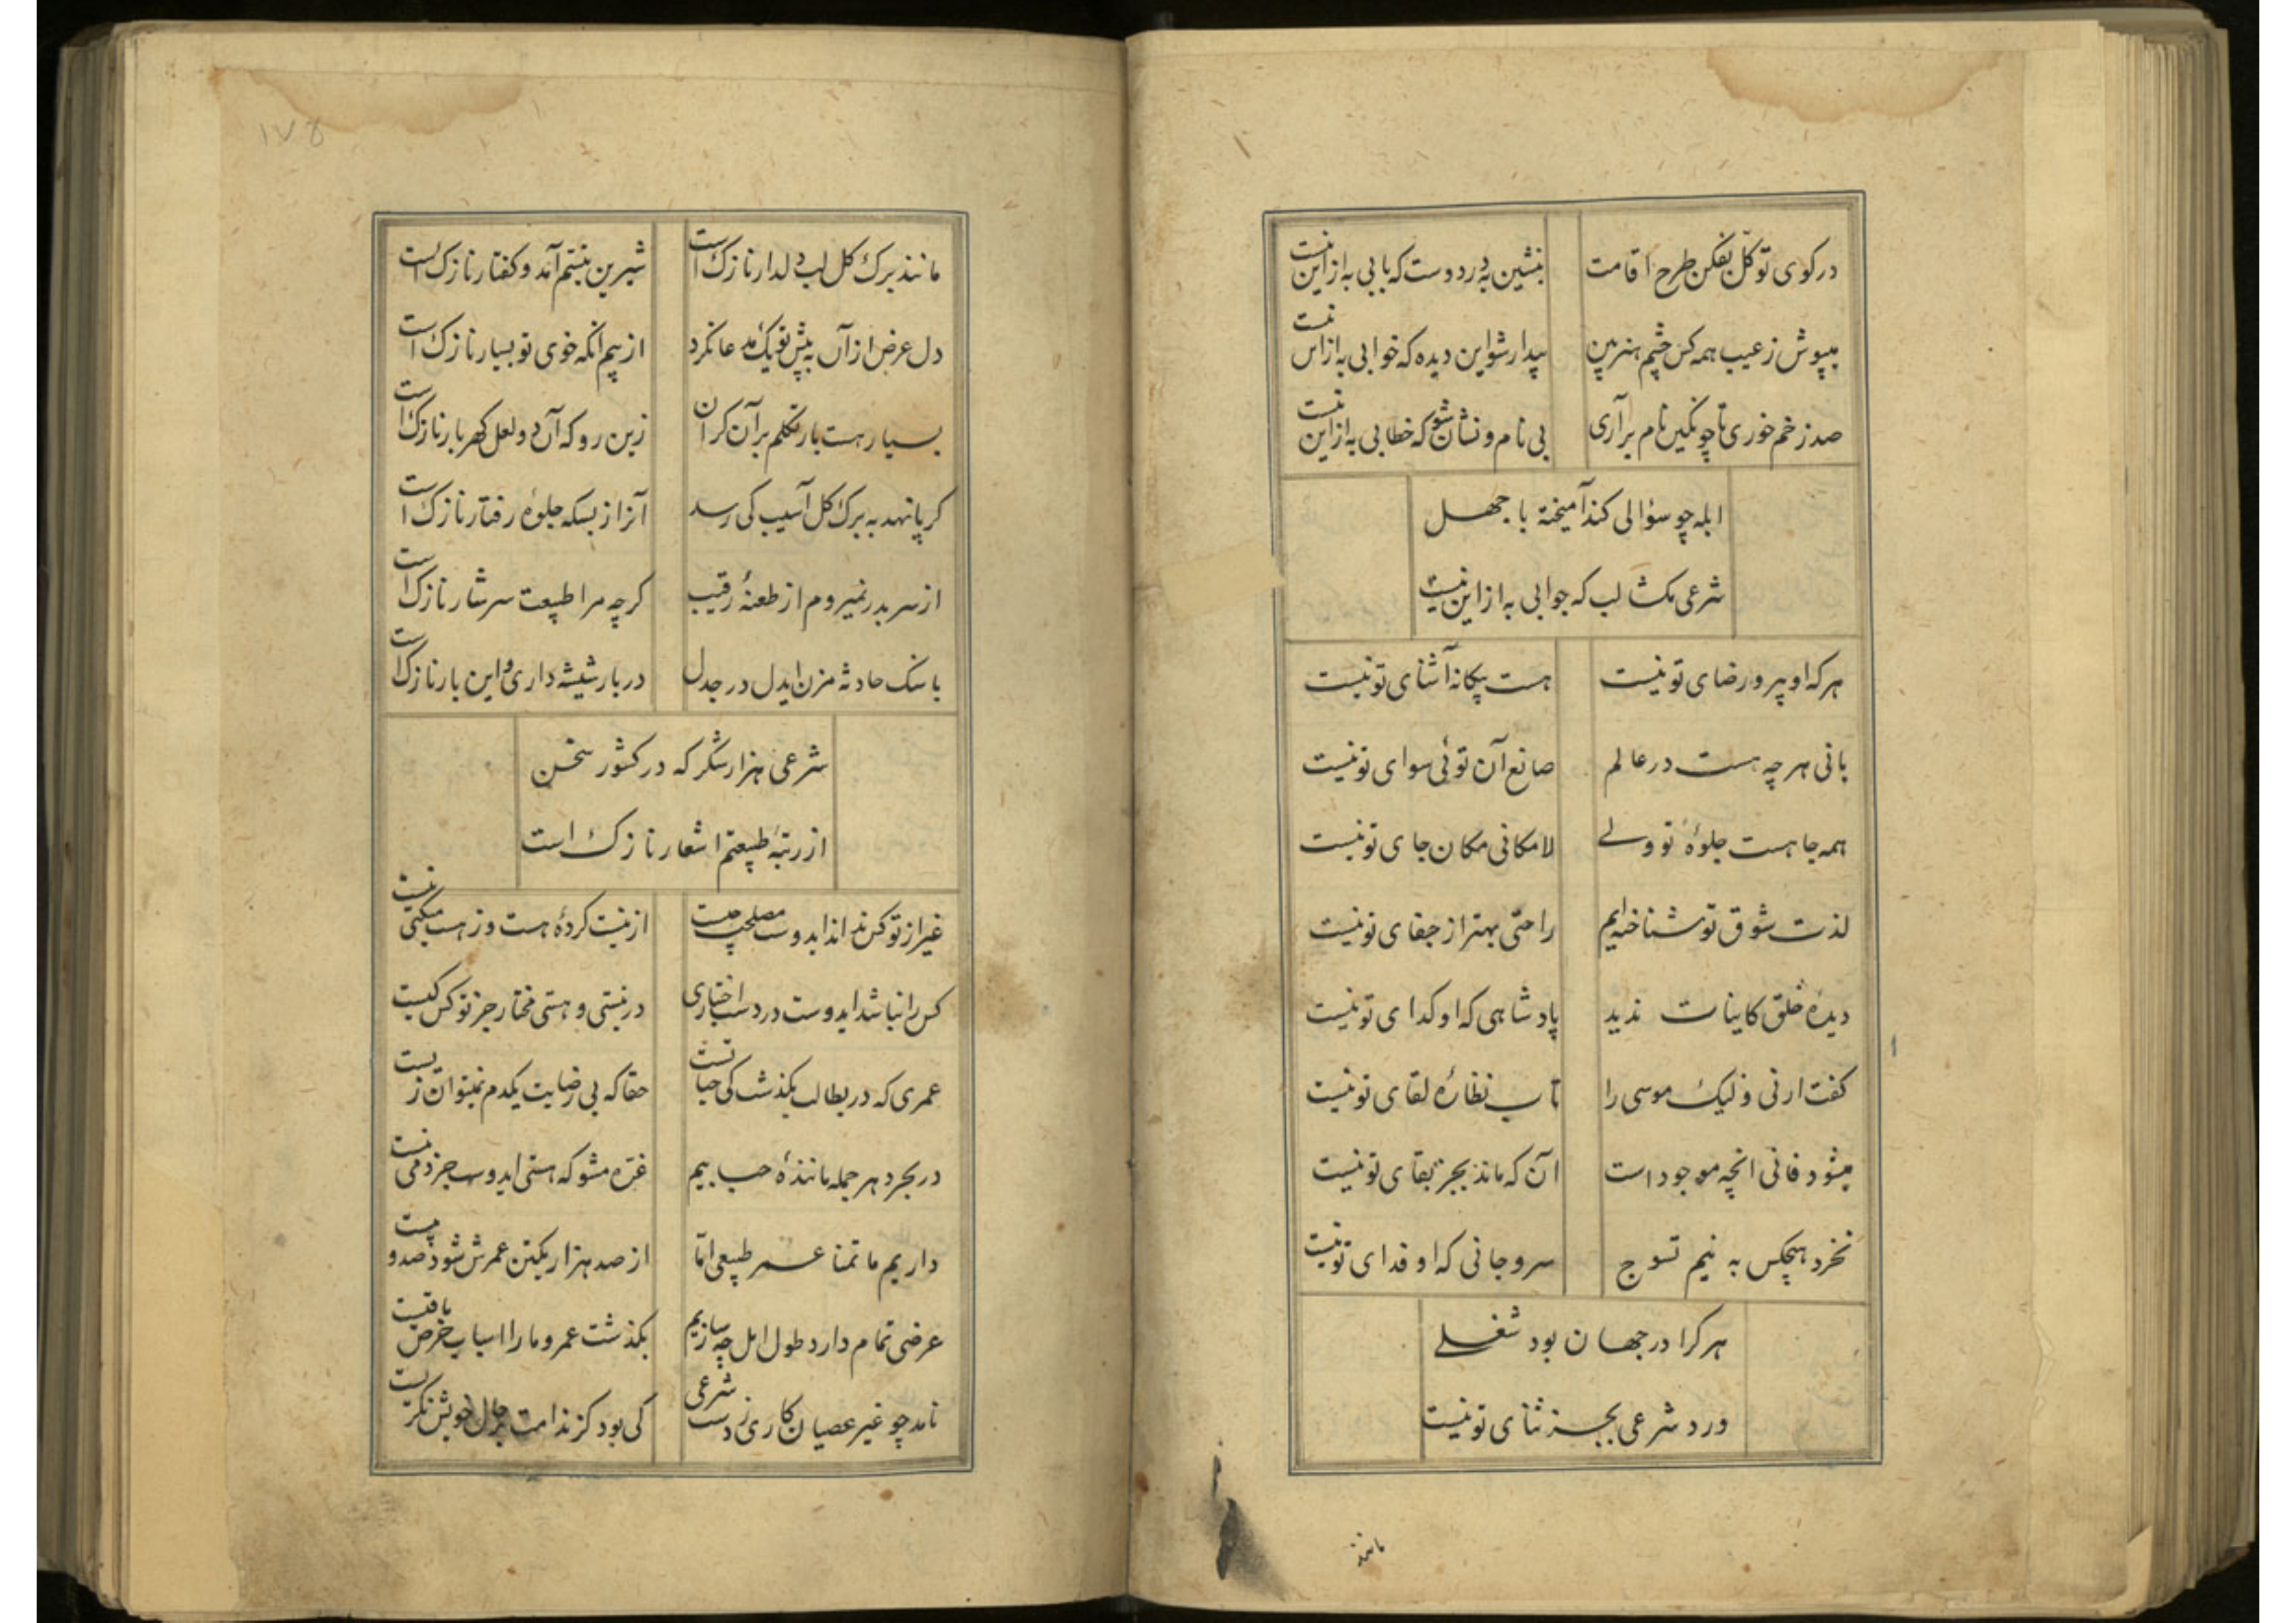 در کوی توکل بفکن طرح اقامت بنشین به در دوست که بابی به ازاین نیست
بپوش ز عیب همه کس چشم هنربین بیدار شو این دیده که خوابی به ازاین نیست
صد زخم خوری تا چو نگین نام برآری بی نام و نشان شو که خطابی به ازاین نیست
ابله چو سؤالی کند آمیخته با جهل
شرعی مکشا لب که جوابی به ازاین نیست
هرکه او پیرو رضای تو نیست هست بیکانه آشنای تو نیست
بانی هرچه هست در عالم صانع آن توئی سوای تو نیست
همه جا هست جلوهٔ تو ولے لامکانی مکان جای تو نیست
لذت شوق تو شناخته‌ایم راحتی بهتر از جفای تو نیست
دیدهٔ خلق کاینات ندید پادشاهی که او کدای تو نیست
کفت ارنی ولیک موسی را تاب نظارهٔ لقای تو نیست
میشود فانی انچه موجود است آن که ماند بجز بقای تو نیست
نخرد هیچکس به نیم تسوج سر و جانی که او فدای تو نیست
هرکرا در جهان بود شغلے
ورد شرعی بجز ثنای تو نیست
مانند
۱۷۵
مانند برک کل لب دلدار نازک است شیرین تبسم آمد و کفتار نازک است
دل عرض از آن به پیش تو یک مدعا نکرد از بیم انکه خوی تو بسیار نازک است
بسیار هست بار تکلم بر آن کران زین رو که آن دو لعل کهربار نازک است
کر پا نهد به برک کل آسیب کی رسد آنرا ز بسکه جلوهٔ رفتار نازک است
از سر بدر نمیروم از طعنهٔ رقیب کرچه مرا طبیعت سرشار نازک است
با سنک حادثه مزن ایدل در جدل در بار شیشه داری و این بار نازک است
شرعی هزار شکر که در کشور سخن
از رتبهٔ طبیعتم اشعار نازک است
غیر از تو کس نداند ایدوست مصلحت چیست از نیست کردهٔ هست وز هست میکنی نیست
کس را نباشد ایدوست در دست اختیاری در نیستی و هستی مختار جز تو کس کیست
عمری که در بطالت بکذشت کی حیاتست حقا که بی رضایت یکدم نمیتوان زیست
در بحر دهر جمله مانندهٔ حبابیم غره مشو که هستی ایدوست جز دمی نیست
داریم ما تمنا عمر طبیعی اما از صد هزار یکتن عمرش شود صد و بیست
عرضی تمام دارد طول امل چه سازیم بکذشت عمر و ما را اسباب حرص باقیست
نامد چو غیر عصیان کاری ز دست شرعی کی بود کز ندامت بر حال خویش نکریست